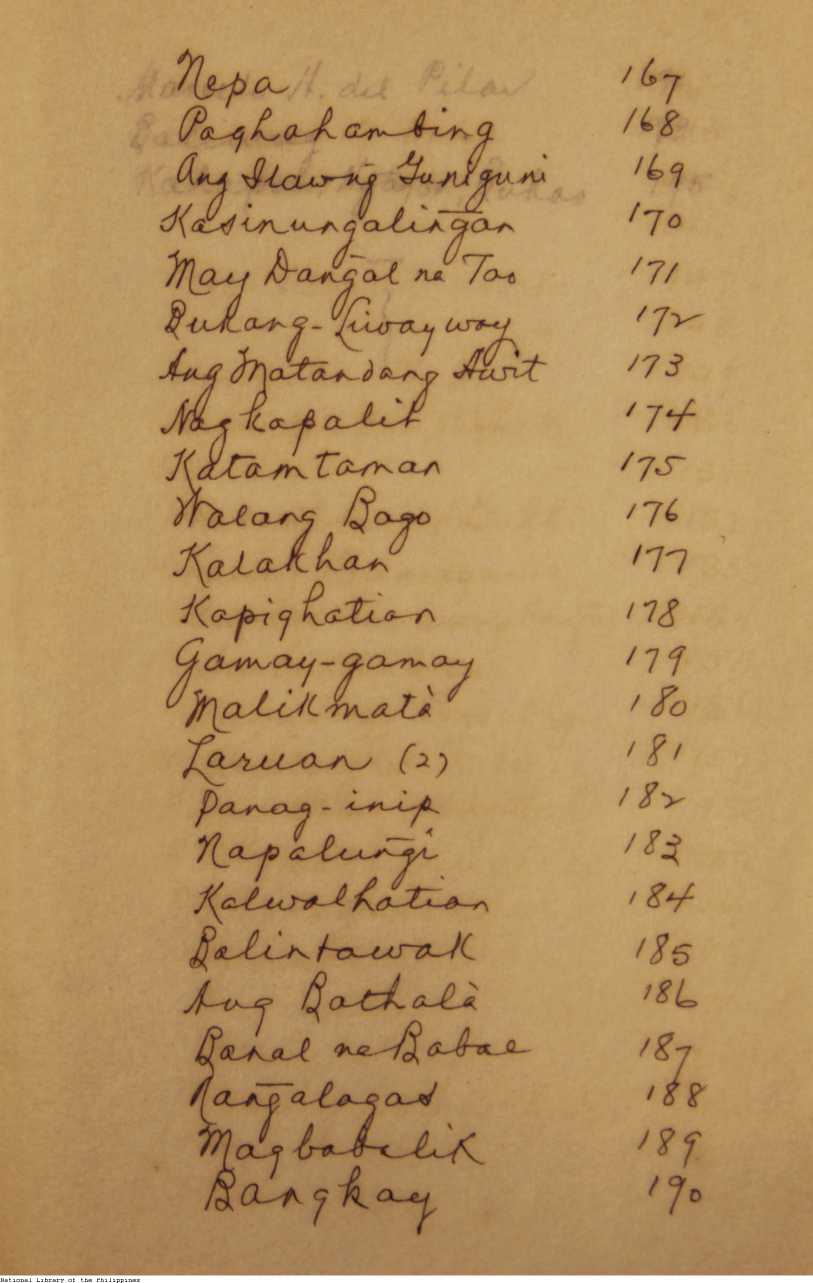 Nepa 167
Paghahambing 168
Ang Ilaw ng̃ Guniguni 169
Kasinungaling̃an 170
May Dang̃al na Tao 171
Bukang-Liwayway 172
Ang Matandang Awit 173
Nagkapalit 174
Katamtaman 175
Walang Bago 176
Kalakhan 177
Kapighatian 178
Gamay-gamay 179
Malikmatà 180
Laruan (2) 181
Panag-inip 182
Napalung̃i 183
Kalwalhatian 184
Balintawak 185
Ang Bathalà 186
Banal na Babae 187
Nang̃alagas 188
Magbabalik 189
Bangkay 190
National Library of the Philippines